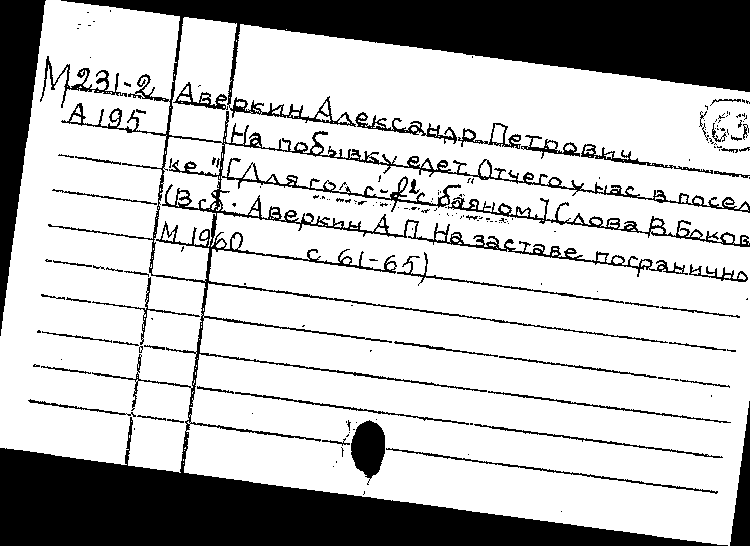 М231-2 Аверкин, Александр Петрович.
63
А 195 На побывку едет. "Отчего у нас в посел
ке..." [Для гол. с баяном.] Слова В. Боков
(В сб.: Аверкин, А. П. На заставе погранично
М, 1960 с. 61-65)